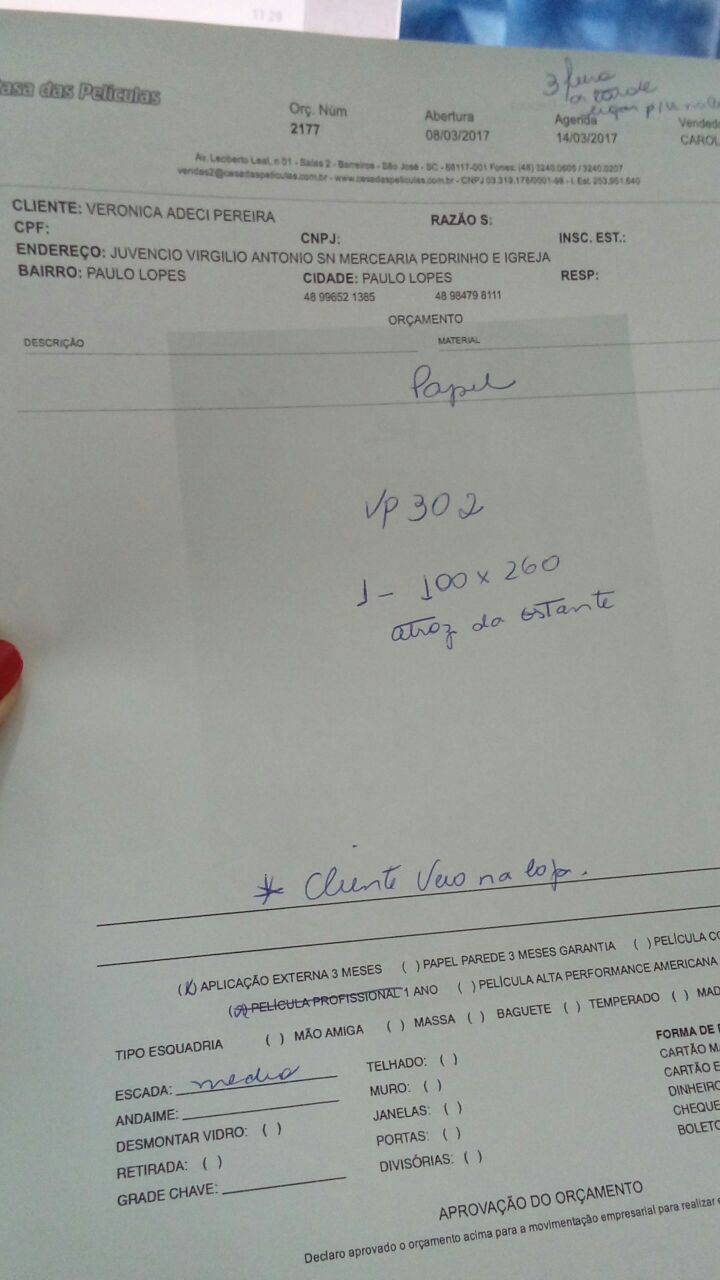 11:29
asa das Películas
3 feira
a tarde
ligar p/
Orç. Núm
2177
Abertura
08/03/2017
Agenda
14/03/2017
Vended
CAROL
Av. Leoberto Leal, n 01 - Salas 2 - Barreiros - São José - SC - 88117-001 Fones: (48) 3240.0606 / 3240.0207
vendas2@casadaspeliculas.com.br - www.casadaspeliculas.com.br - CNPJ 03.319.178/0001-98 - I. Est. 253.951.640
CLIENTE: VERONICA ADECI PEREIRA RAZÃO S:
CPF: CNPJ: INSC. EST.:
ENDEREÇO: JUVENCIO VIRGILIO ANTONIO SN MERCEARIA PEDRINHO E IGREJA
BAIRRO: PAULO LOPES CIDADE: PAULO LOPES RESP:
48 99652 1385 48 98479 8111
ORÇAMENTO
DESCRIÇÃO MATERIAL
Papel
VP 302
1 - 100 x 260
atroz da estante
* Cliente Veio na loja.
(X) APLICAÇÃO EXTERNA 3 MESES ( ) PAPEL PAREDE 3 MESES GARANTIA ( ) PELÍCULA CO
( ) PELÍCULA PROFISSIONAL 1 ANO ( ) PELÍCULA ALTA PERFORMANCE AMERICANA
TIPO ESQUADRIA ( ) MÃO AMIGA ( ) MASSA ( ) BAGUETE ( ) TEMPERADO ( ) MAD
ESCADA: media TELHADO: ( )
ANDAIME: MURO: ( )
DESMONTAR VIDRO: ( ) JANELAS: ( )
RETIRADA: ( ) PORTAS: ( )
GRADE CHAVE: DIVISÓRIAS: ( )
FORMA DE
CARTÃO MA
CARTÃO E
DINHEIRO
CHEQUE
BOLETO
APROVAÇÃO DO ORÇAMENTO
Declaro aprovado o orçamento acima para a movimentação empresarial para realizar